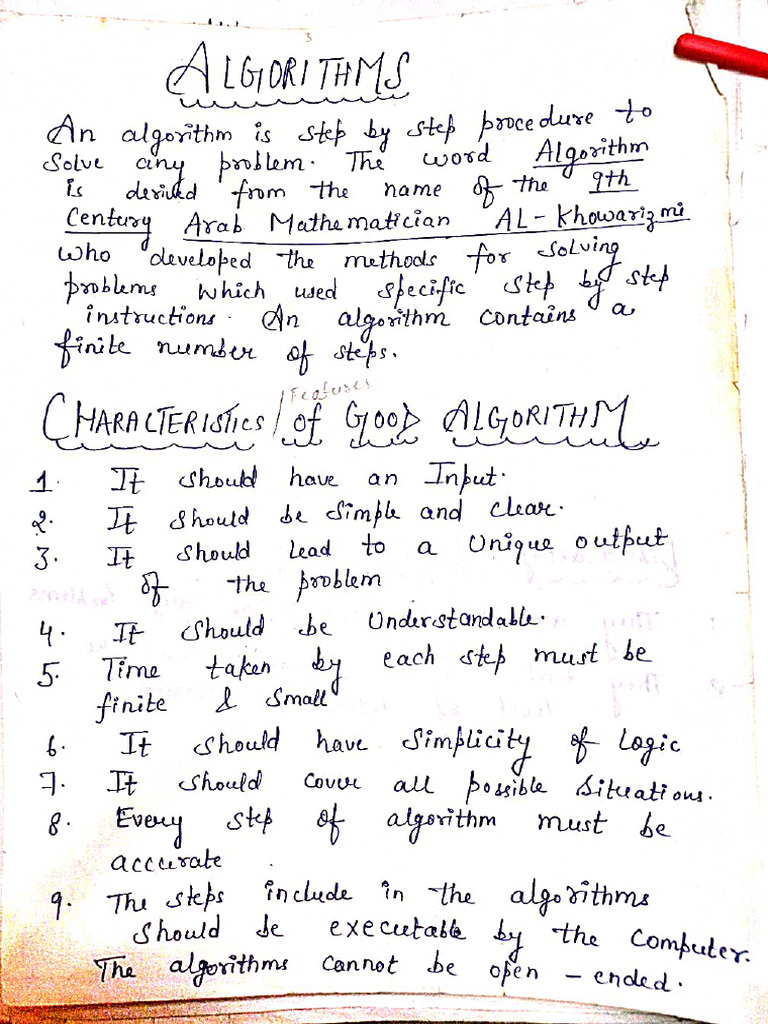 ALGORITHMS
An algorithm is step by step procedure to
solve any problem. The word Algorithm
is derived from the name of the 9th
Century Arab Mathematician AL-Khowarizmi
who developed the methods for solving
problems which used specific step by step
instructions. An algorithm contains a
finite number of steps.
/Features
CHARACTERISTICS of GOOD ALGORITHM
1. It should have an Input.
2. It should be simple and clear.
3. It should lead to a Unique output
of the problem
4. It should be Understandable.
5. Time taken by each step must be
finite & small
6. It should have simplicity of Logic
7. It should cover all possible situations.
8. Every step of algorithm must be
accurate.
9. The steps include in the algorithms
should be executable by the computer.
The algorithms cannot be open-ended.